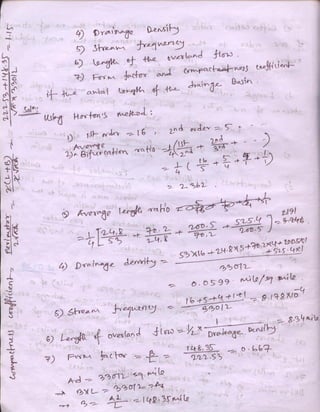 4) Drainage Density
5) Stream frequency
6) Length of the overland flow
7) Form factor and compactness coefficient
if the axial length of the drainage Basin.
Soln:
Using Horton's method:
1) 1st order = 16, 2nd order = 5
2) Average Bifurcation ratio = 1/4 [1st/2nd + 2nd/3rd + ...]
= 1/4 [16/5 + 5/4 + 4/1]
= 2.362
3) Average length ratio =
= 1/4 [24.8/53 + 70.2/24.8 + 200.5/70.2 + 525.4/200.5]
4) Drainage density = 53x16 + 24.8x5 + 70.2x4 + 200.5x1 + 525.4x1
33012
= 0.0599 mile/sq mile
5) Stream frequency = 16+5+4+1+1 / 33012 = 8.178x10^-4
6) Length of overland flow = 1/2 x 1/Drainage Density = 8.34 mile
7) Form factor = B/L = 148.35/222.53 = 0.667
Ad = 33012 sq mile
→ BxL = 33012 = Ad
→ B = Ad/L = 148.35 mile
Compactness coefficient = Perimeter / 2√πA = 2(L+B) / 2√πA = 222.53+148.35 / √πx33012 = 1.15